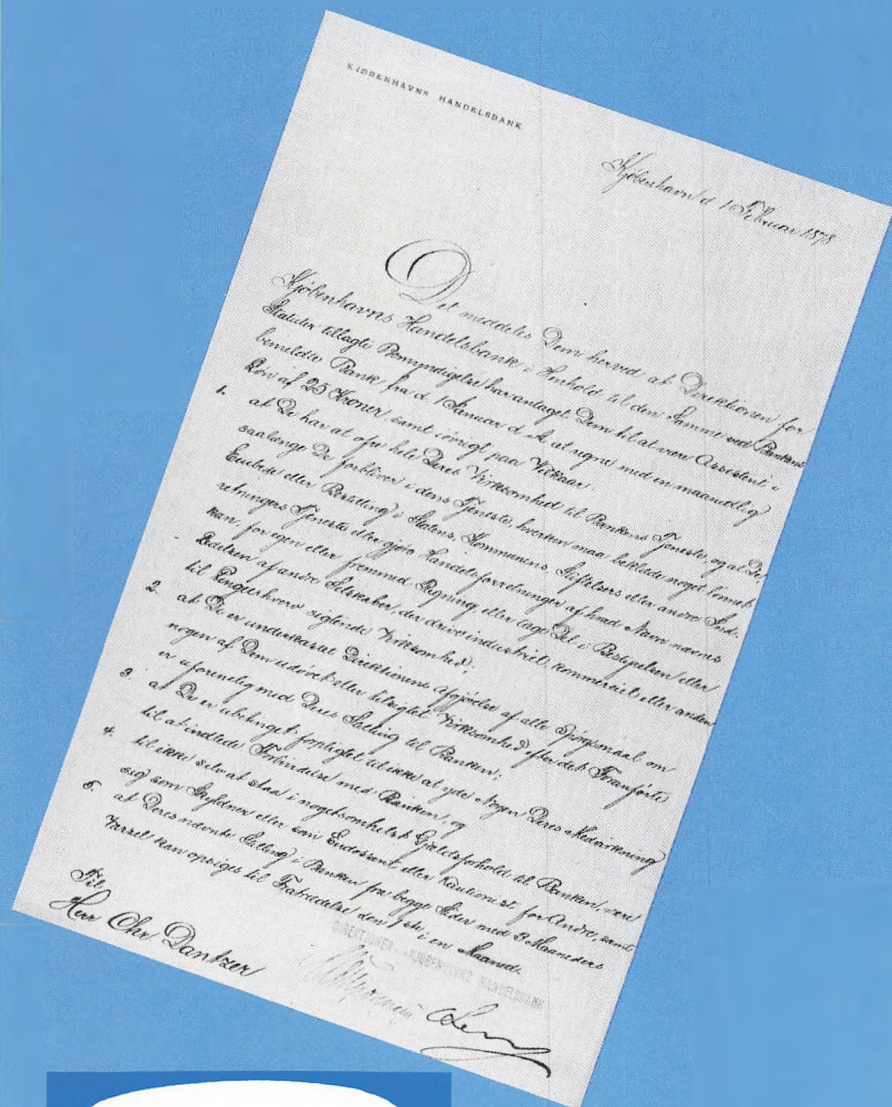 KJØBENHAVNS HANDELSBANK
Kjøbenhavn d. 1 Februar 1878
Det meddeles Dem herved at Direktionen for
Kjøbenhavns Handelsbank i Henhold til den Samme ved Bankens
Statuter tillagte Bemyndigelse har antaget Dem til at være Assistent i
bemeldte Bank fra d. 1 Januar d. A. at regne med en maanedlig
Løn af 25 Kroner, samt iøvrigt paa Vilkaar:
1. at De har at ofre hele Deres Virksomhed til Bankens Tjeneste, og at De,
saalænge De forbliver i dens Tjeneste, hverken maa beklæde noget lønnet
Embede eller Bestilling i Statens, Kommunens, Stiftelsers eller andre Ind-
retningers Tjeneste eller gjøre Handelsforretninger af hvad Navn nævnes
kan, for egen eller fremmed Regning, eller tage Del i Bestyrelsen eller
Ledelsen af andre Selskaber, der drive industriel, kommerciel eller anden
til Pengeerhverv sigtende Virksomhed;
2. at De er underkastet Direktionens Afgjørelse af alle Spørgsmaal om
nogen af Dem udøvet eller tilsigtet Virksomhed efter det Foranførte
er uforenelig med Deres Stilling til Banken;
3. at De er ubetinget forpligtet til ikke at yde Nogen Deres Medvirkning
til at indlede Forbindelse med Banken, og
4. til ikke selv at staa i nogetsomhelst Gjældsforhold til Banken, være
sig som Skyldner eller som Endossent eller Kautionist for Andre, samt
5. at Deres nævnte Stilling i Banken fra begge Sider med 3 Maaneders
Varsel kan opsiges til Fratrædelse den 1ste i en Maaned.
DIREKTIONEN KJØBENHAVNS HANDELSBANK
Til
Herr Chr. Dantzer